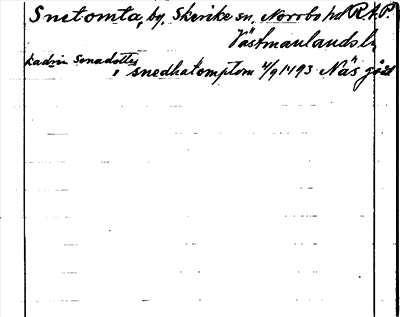 Snetomta, by, Skerike sn, Norrbo hd R.A.P.
Västmanlands l.
Kadrin Jonadotter
, snedhatomptom 4/9 1493 Näs gård